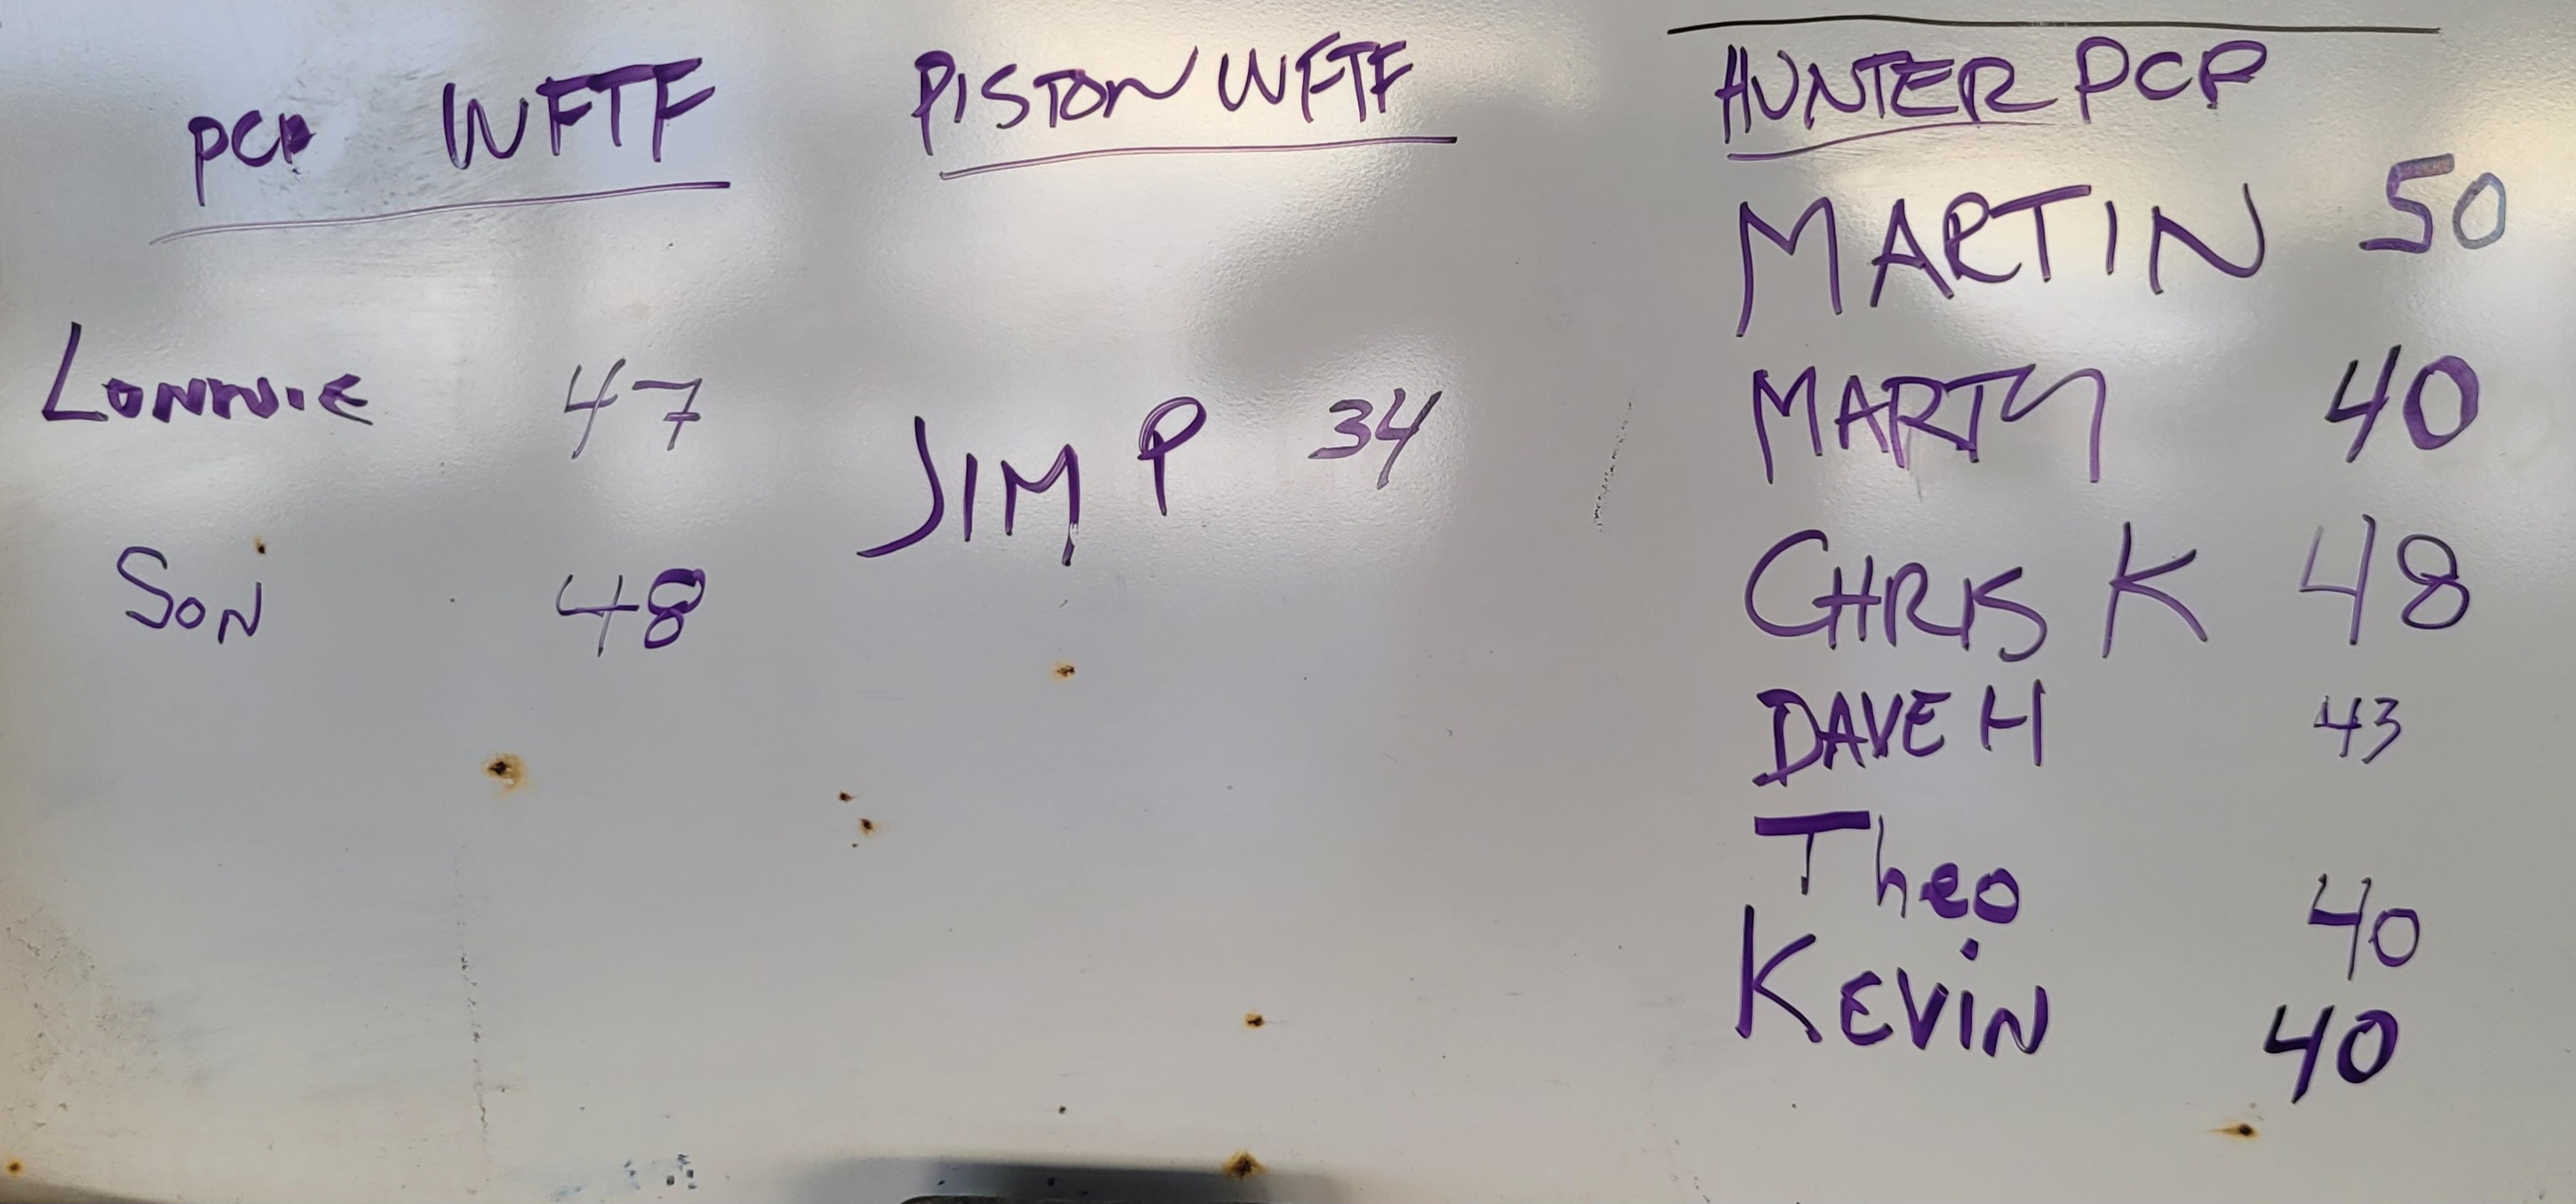 PCP WFTF
Lonnie 47
Son 48
PISTON WFTF
JIM P 34
HUNTER PCP
MARTIN 50
MARTY 40
CHRIS K 48
DAVE H 43
Theo 40
KEVIN 40